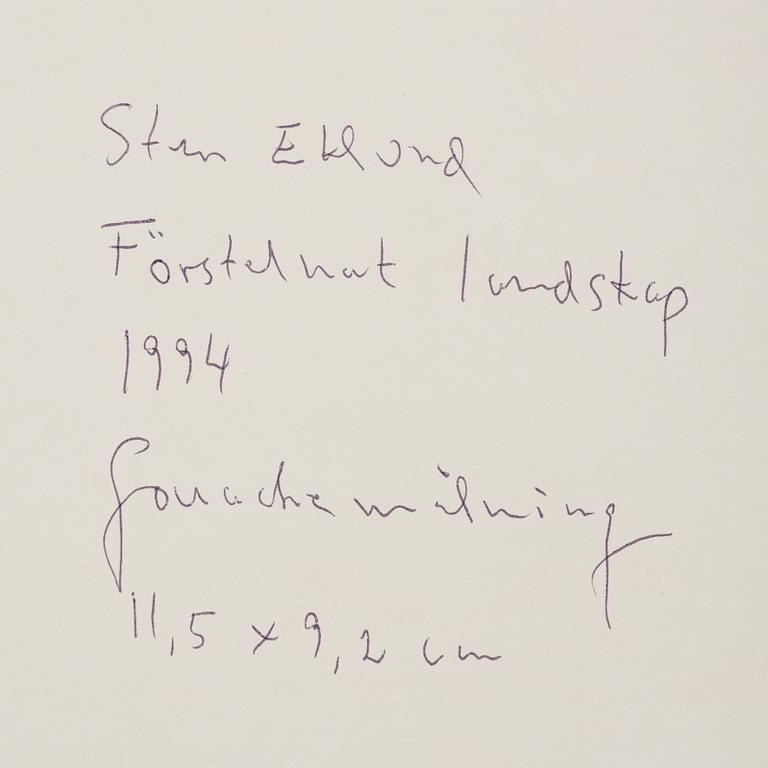 Sten Eklund
Förstelnat landskap
1994
Gouachemålning
11,5 x 9,2 cm